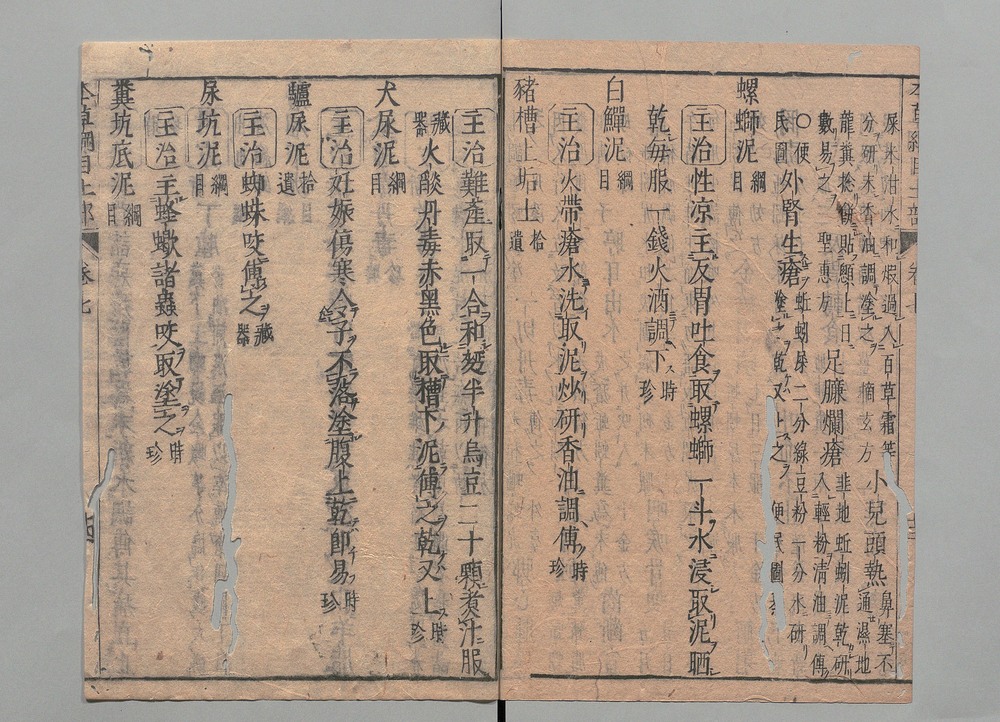 屎朱泔水和煆過入百草霜等
分研末香油調塗之 摘玄方 小兒頭熱 鼻塞不通濕地
龍糞捻餠貼顖上日數易之 聖惠方 足臁爛瘡 韭地蚯蚓泥乾研入輕粉清油調傅
○便民圖 外腎生瘡 蚯蚓屎二分綠豆粉一分水研塗之乾又上之 便民圖
螺螄泥 綱目
主治性涼主反胃吐食取螺螄一斗水浸取泥晒
乾每服一錢火酒調下 時珍
白鱓泥 綱目
主治火帶瘡水洗取泥炒研香油調傅 時珍
豬槽上垢土 拾遺
本草綱目土部 卷七
主治難產取一合和麪半升烏豆二十顆煮汁服
藏器 火燄丹毒赤黑色取槽下泥傅之乾又上 時珍
犬尿泥 綱目
主治妊娠傷寒令子不落塗腹上乾即易 時珍
驢尿泥 拾遺
主治蜘蛛咬傅之 藏器
尿坑泥 綱目
主治主蜂蠍諸蟲咬取塗之 時珍
糞坑底泥 綱目
本草綱目土部 卷七